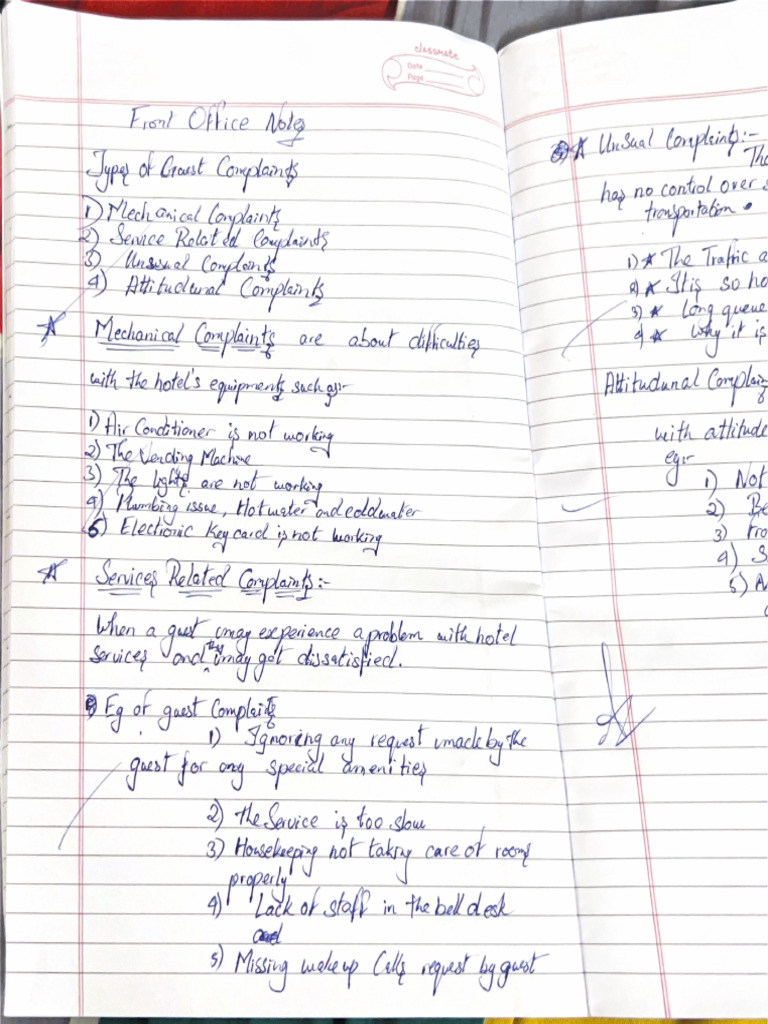 classmate
Date
Page
Front Office Notes
Types of Guest Complaints
1) Mechanical Complaints
2) Service Related Complaints
3) Unusual Complaints
4) Attitudunal Complaints
★ Mechanical Complaints are about difficulties
with the hotel's equipments such as:-
1) Air Conditioner is not working
2) The Vending Machine
3) The lights are not working
4) Plumbing issue, Hot water and cold water
5) Electronic Key card is not working
★ Services Related Complaints:-
When a guest may experience a problem with hotel
services and they may get dissatisfied.
Eg of guest Complaints
1) Ignoring any request made by the
guest for any special amenities
2) the Service is too slow
3) Housekeeping not taking care of rooms
properly
4) Lack of staff in the bell desk
5) Missing wake up Calls request by guest
★ Unusual Complaints:- The
has no control over
transportation.
1) ★ The Traffic a
2) ★ It is so ho
3) ★ long queue
4) ★ Why it is
Attitudunal Complain
with attitude
eg:-
1) Not
2) Be
3) Fro
4) S
5) A